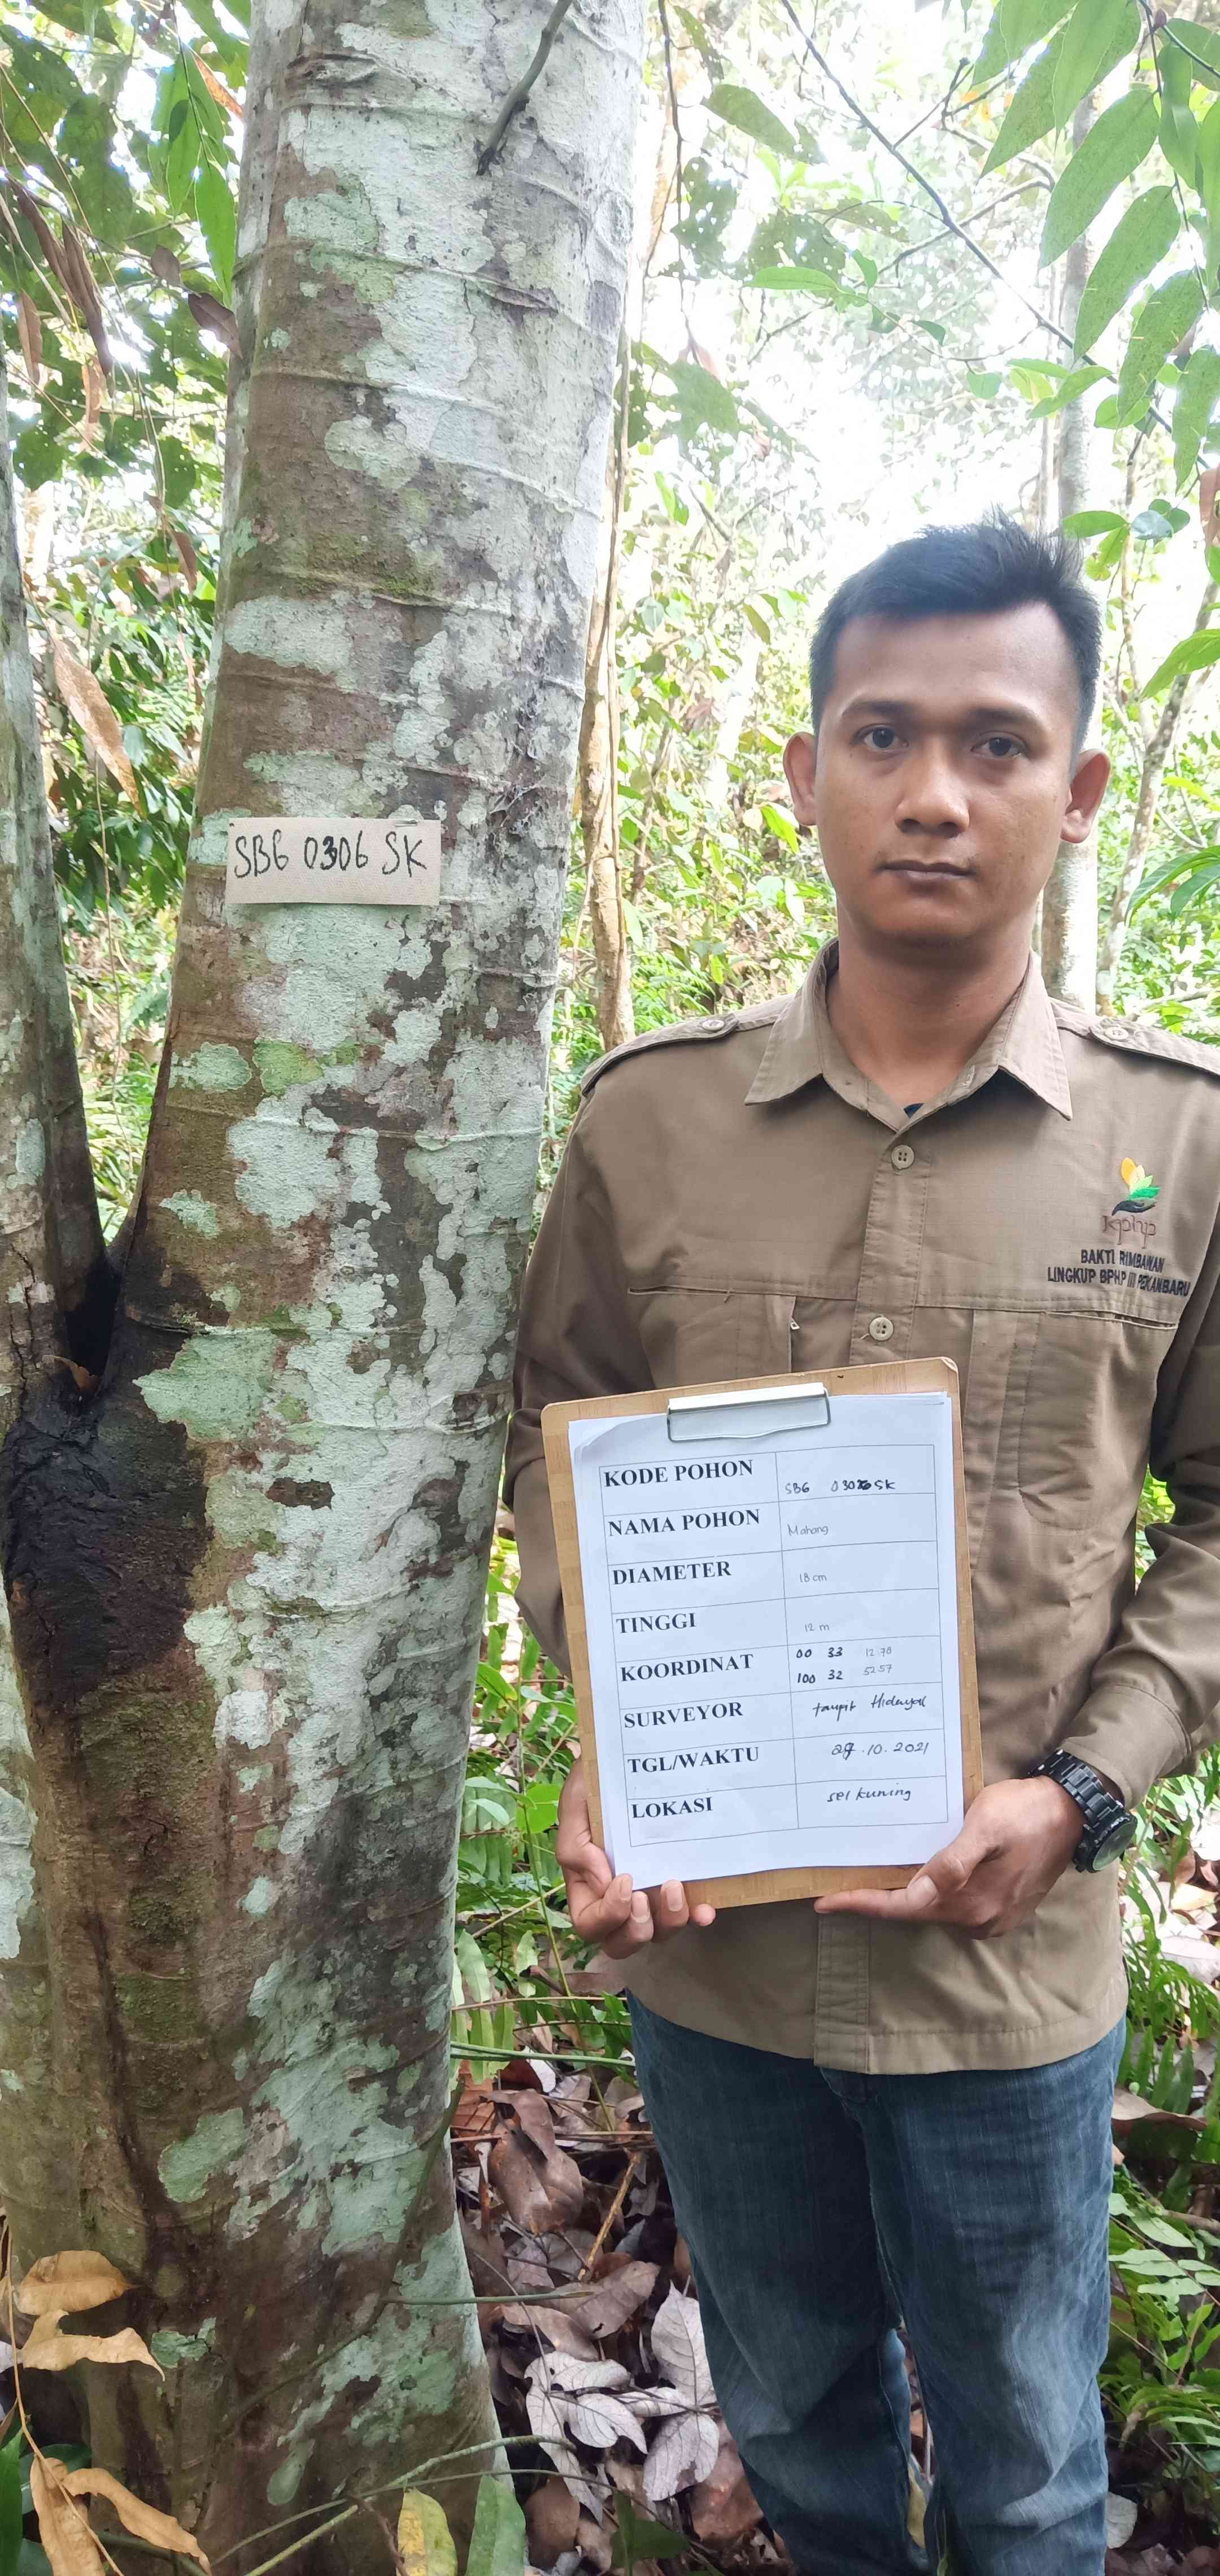 SBG 0306 SK
kphp
BAKTI RIMBAWAN
LINGKUP BPHP III PEKANBARU
KODE POHON SBG 0306 SK
NAMA POHON Mahang
DIAMETER 18 cm
TINGGI 12 m
KOORDINAT 00 33 12.70
100 32 52.57
SURVEYOR taupik Hidayat
TGL/WAKTU 27.10.2021
LOKASI sei kuning